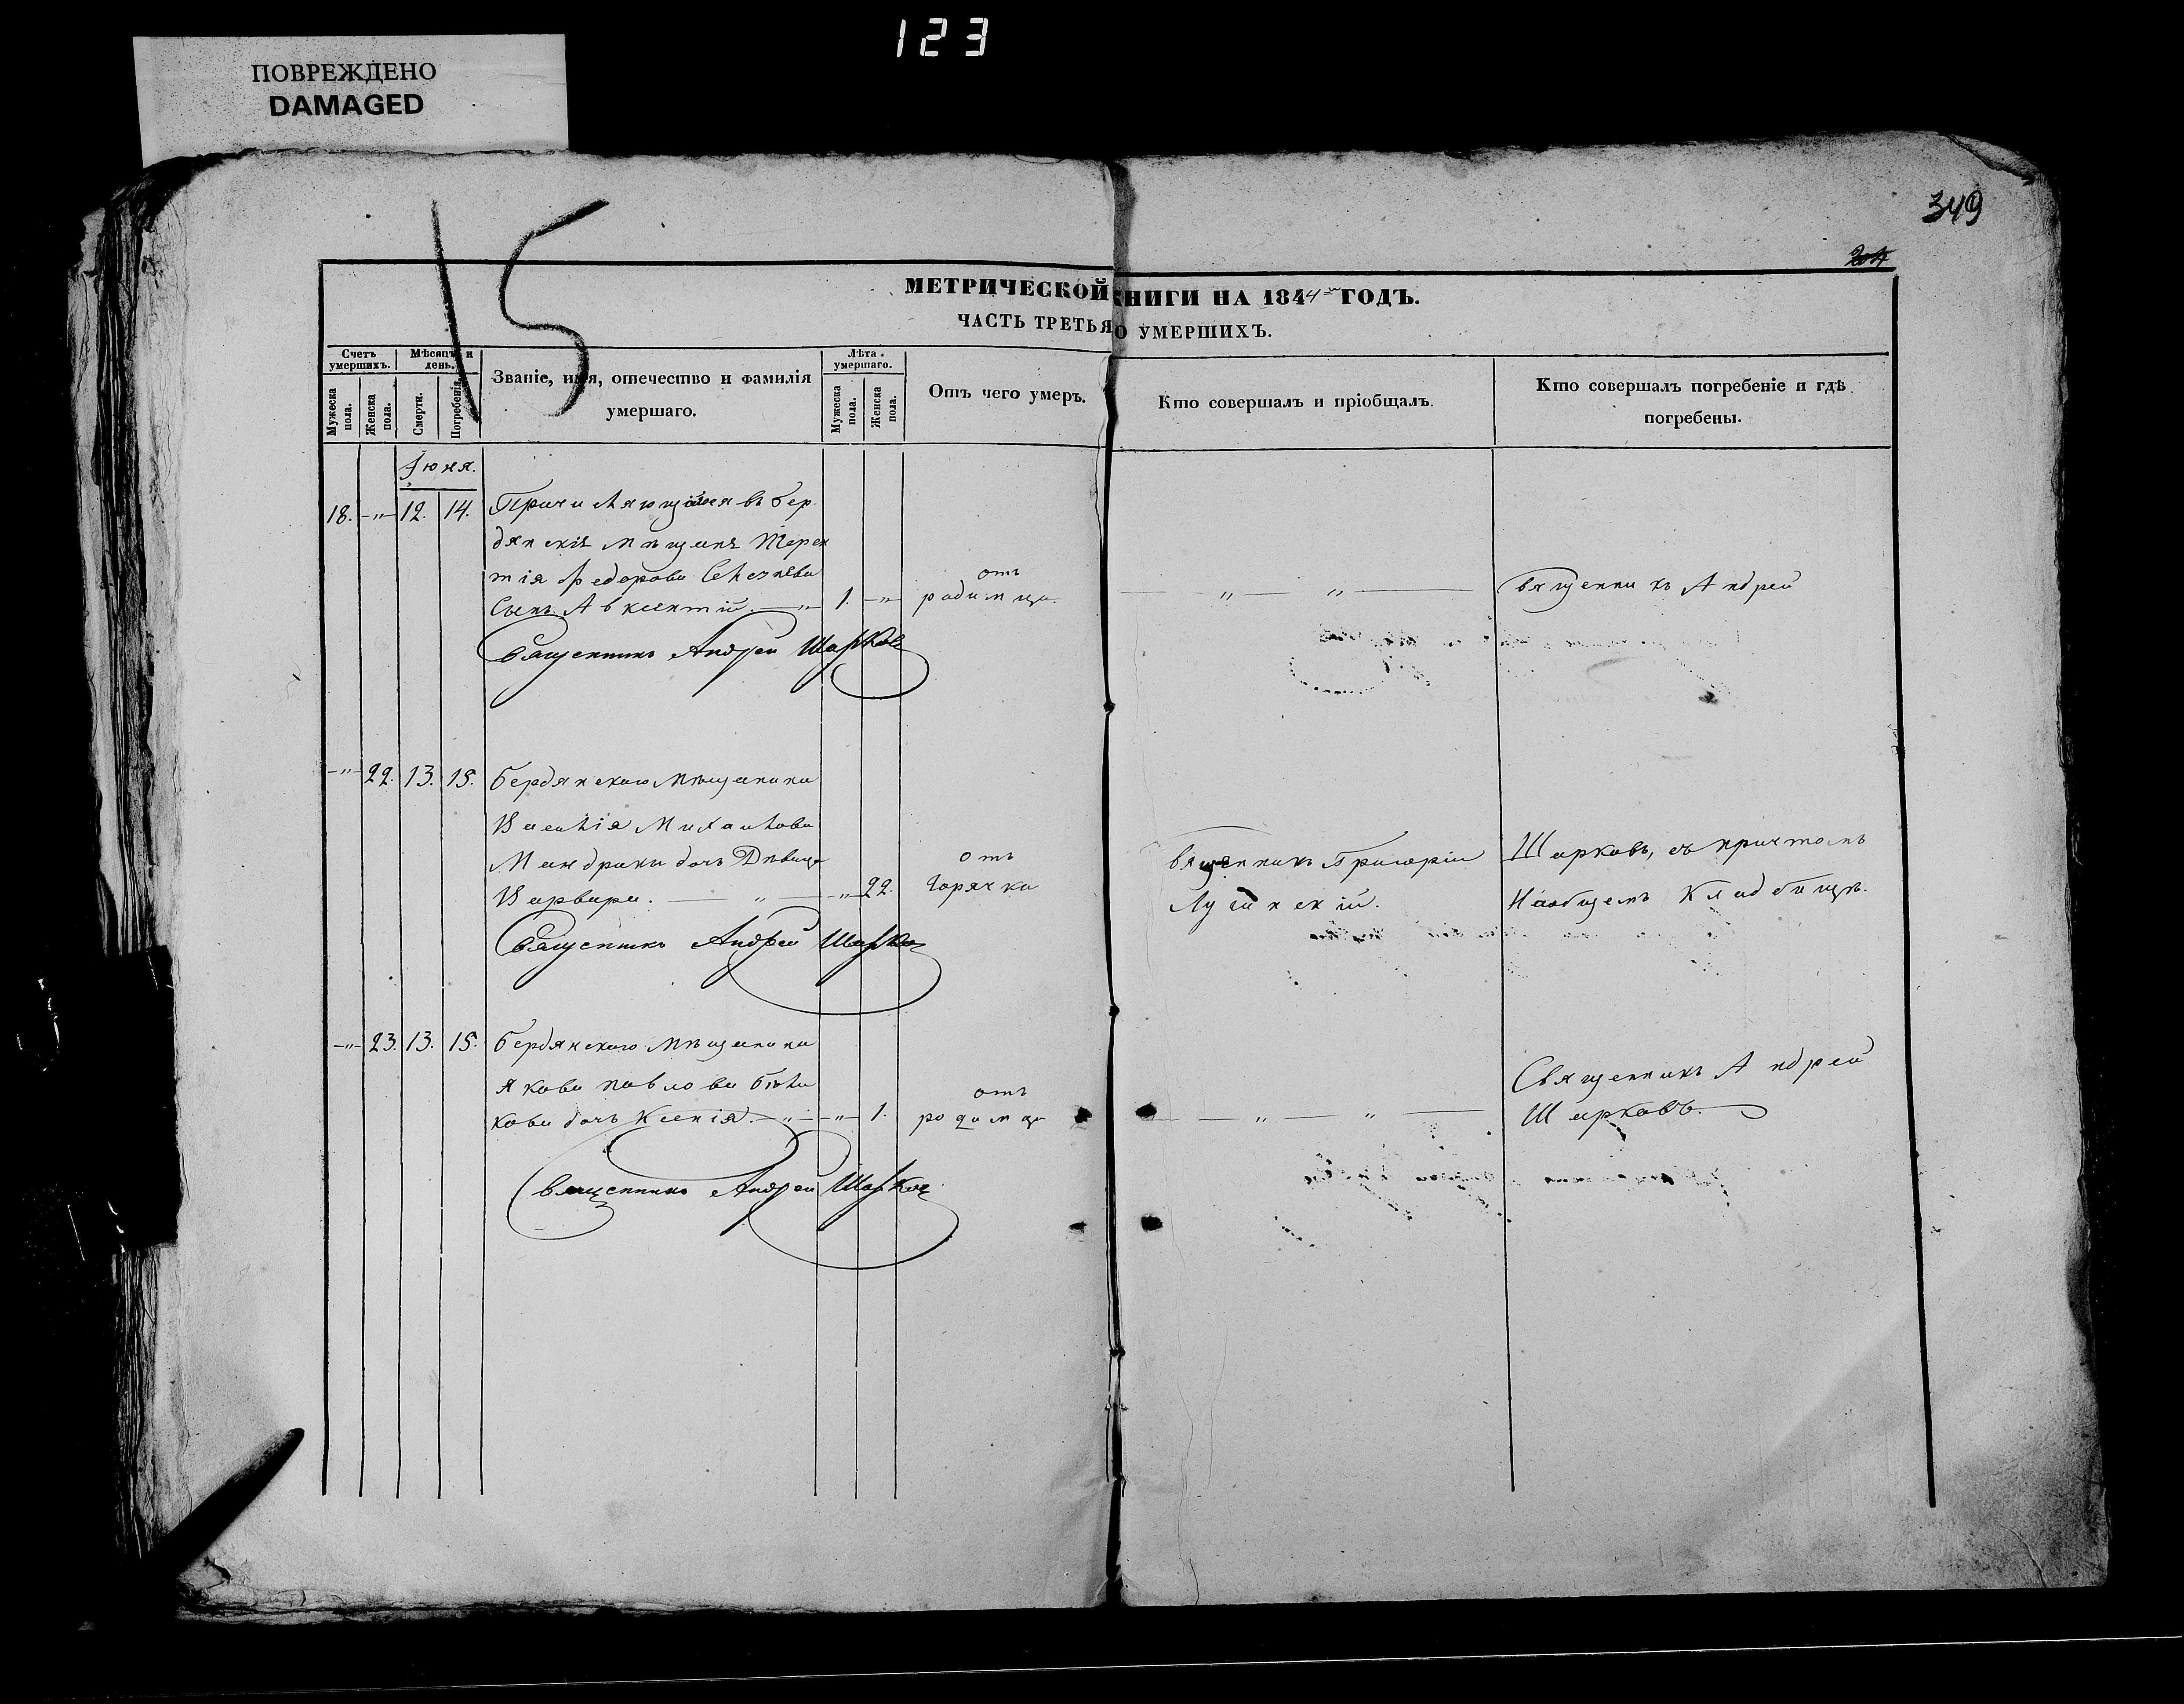 123
ПОВРЕЖДЕНО
DAMAGED
15
349
204
МЕТРИЧЕСКОЙ КНИГИ НА 1844 ГОДЪ.
ЧАСТЬ ТРЕТЬЯ О УМЕРШИХЪ.
Счетъ умершихъ.
Мѣсяцъ и день.
Званіе, имя, отечество и фамилія умершаго.
Лѣта умершаго.
Отъ чего умеръ.
Кто совершалъ и пріобщалъ.
Кто совершалъ погребеніе и гдѣ погребены.
Мужеска пола.
Женска пола.
Смерти.
Погребенія.
Мужеска пола.
Женска пола.
Іюня.
18. -"- 12. 14. Причисляющійся въ бер
дянскіе мѣщане Терен
тія Федорова
сынъ Авксентій. 1. -"- отъ родимца. " " Священникъ Андрей
Священникъ Андрей Шарковъ
-"- 22. 13. 15. Бердянскаго мѣщанина
Василія Михайлова
Мандрики дочь Дѣвица
Варвара. " " 22. отъ Горячки
Священникъ Григорій
Шарковъ, съ причтомъ
На общемъ Кладбищѣ.
Священникъ Андрей Шарковъ
-"- 23. 13. 15. Бердянскаго мѣщанина
Якова Павлова Бѣли
кова дочь Ксенія. -"- -"- 1. отъ родимца " " Священникъ Андрей
Шарковъ.
Священникъ Андрей Шарковъ